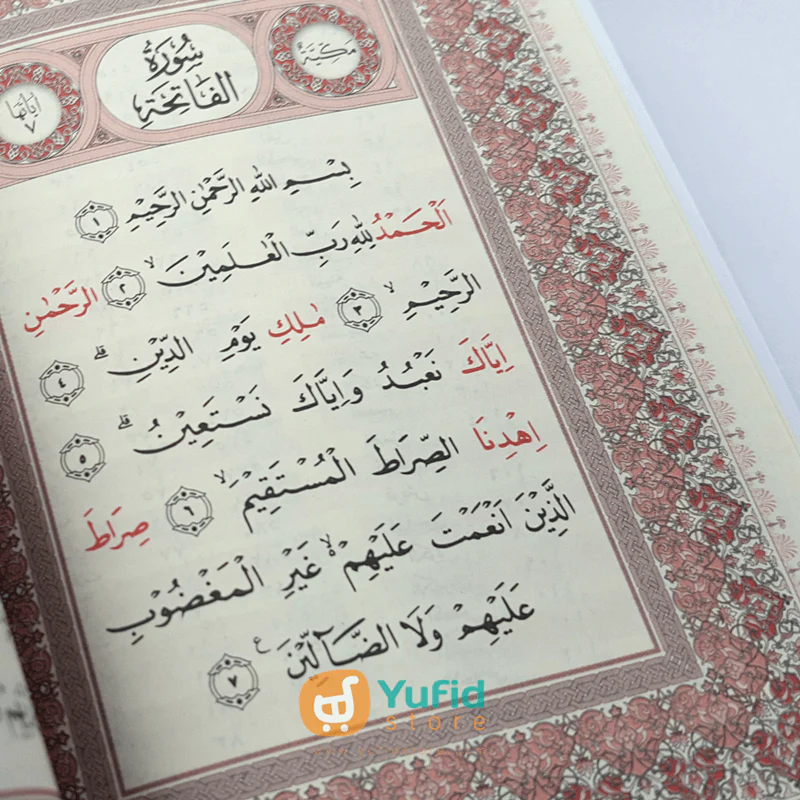 مَكِّيَّةٌ
سُورَةُ
الْفَاتِحَةِ
اٰيَاتُهَا
٧
بِسْمِ اللّٰهِ الرَّحْمٰنِ الرَّحِيْمِ ١
اَلْحَمْدُ لِلّٰهِ رَبِّ الْعٰلَمِيْنَ ۙ ٢ الرَّحْمٰنِ
الرَّحِيْمِ ۙ ٣ مٰلِكِ يَوْمِ الدِّيْنِ ۗ ٤
اِيَّاكَ نَعْبُدُ وَاِيَّاكَ نَسْتَعِيْنُ ۗ ٥
اِهْدِنَا الصِّرَاطَ الْمُسْتَقِيْمَ ۙ ٦ صِرَاطَ
الَّذِيْنَ اَنْعَمْتَ عَلَيْهِمْ ەۙ غَيْرِ الْمَغْضُوْبِ
عَلَيْهِمْ وَلَا الضَّاۤلِّيْنَ ࣖ ٧
Yufid
store